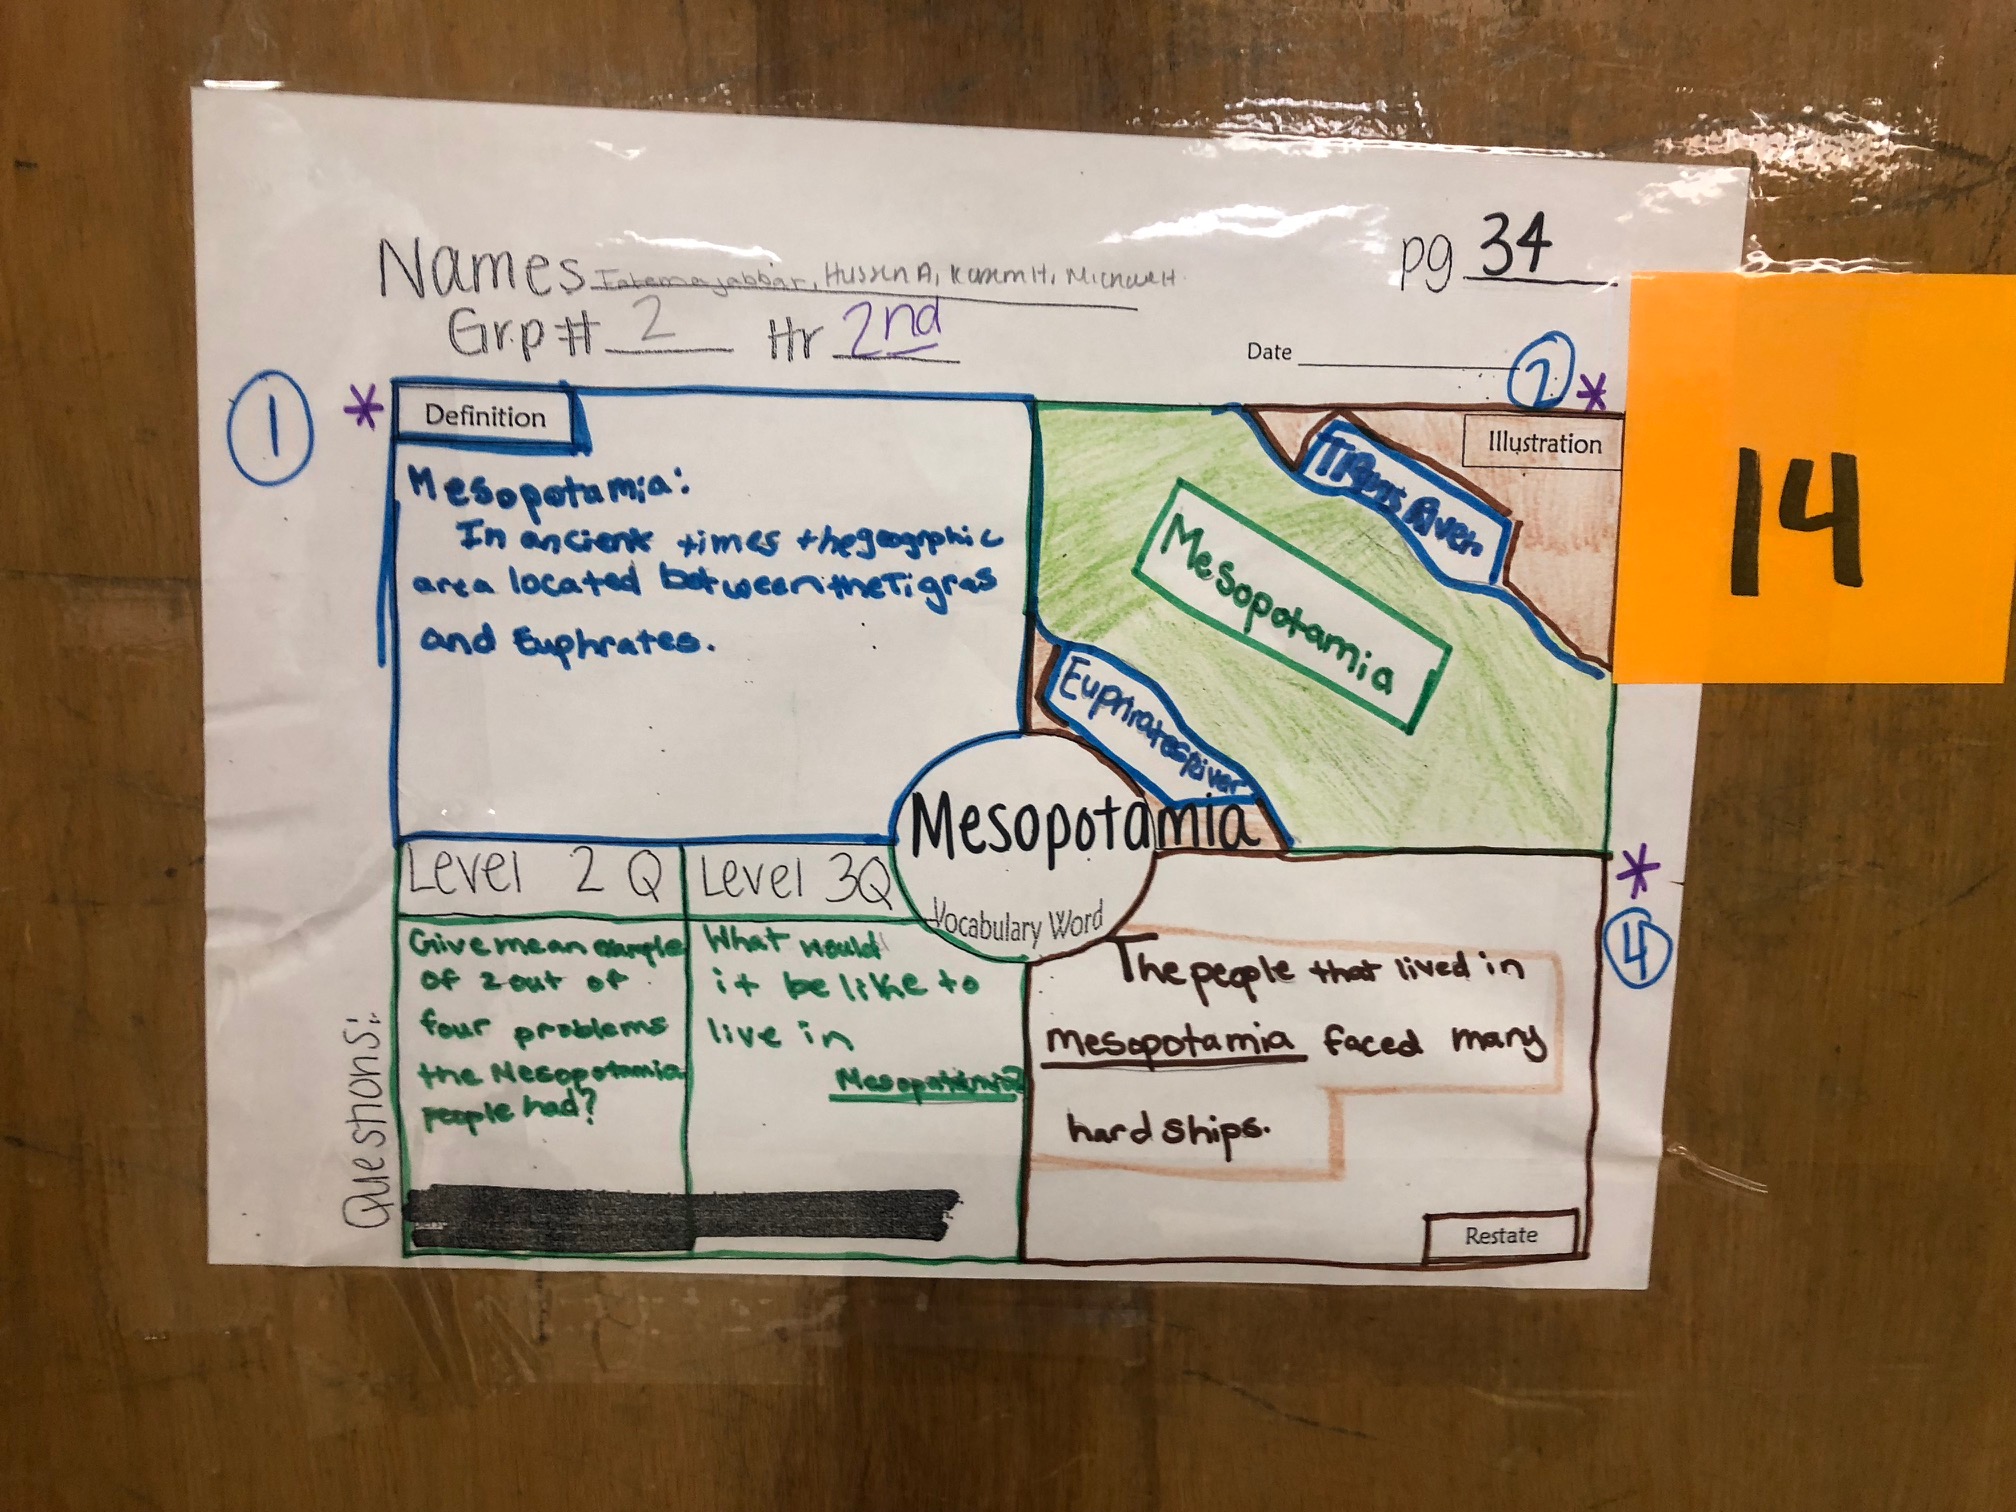 Names Fatema jabbar, Hussen A, Karem H, Michael H.
pg 34
Grp# 2 Hr 2nd
Date
1 *
2 *
14
Definition
Mesopotamia:
In ancient times the geogrphic
area located between the Tigras
and Euphrates.
Illustration
Tigris River
Mesopotamia
Euphrates River
Mesopotamia
Vocabulary Word
Questions:
Level 2 Q
Give me an example
of 2 out of
four problems
the Mesopotamia
people had?
Level 3Q
What would
it be like to
live in
Mesopotamia?
* 4
The people that lived in
mesopotamia faced many
hard ships.
Restate